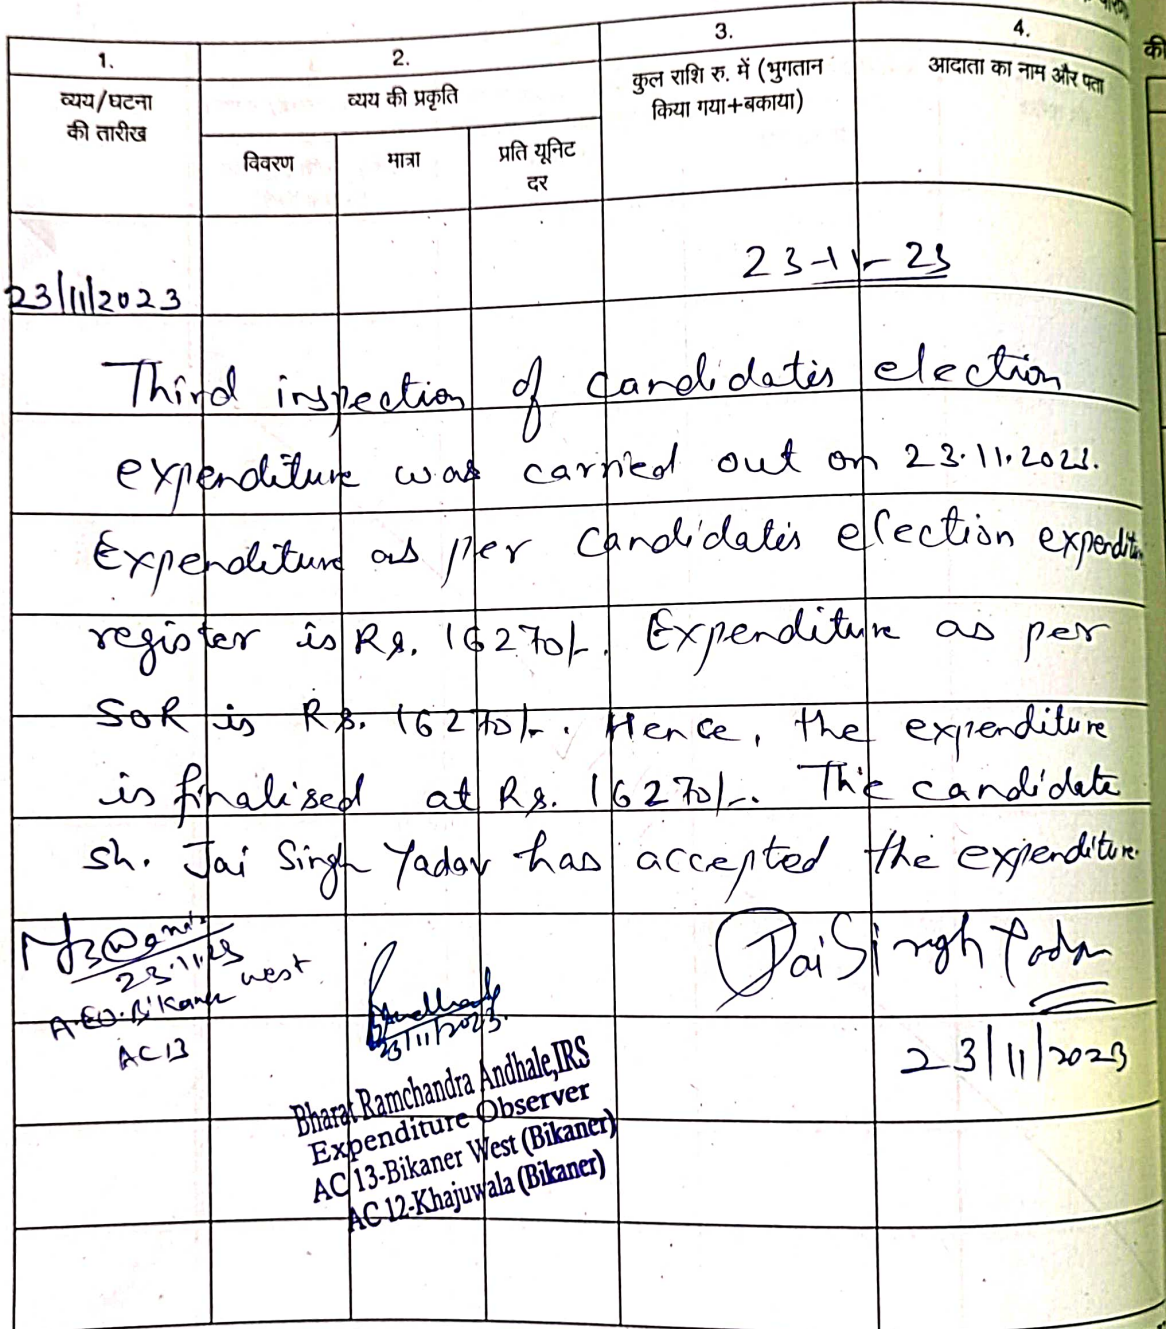 1. 2. 3. 4.
व्यय/घटना की तारीख
व्यय की प्रकृति
कुल राशि रु. में (भुगतान किया गया+बकाया)
आदाता का नाम और पता
की
विवरण मात्रा प्रति यूनिट दर
23-11-23
23/11/2023
Third inspection of candidate's election
expenditure was carried out on 23.11.2023.
Expenditure as per candidate's election expenditure
register is Rs. 16270/-. Expenditure as per
SOR is Rs. 16270/-. Hence, the expenditure
is finalised at Rs. 16270/-. The candidate
Sh. Jai Singh Yadav has accepted the expenditure.
Jai Singh Yadav
23.11.23
A.E.O. Bikaner west
AC 13
23/11/2023
23/11/2023
Bharat Ramchandra Andhale,IRS
Expenditure Observer
AC 13-Bikaner West (Bikaner)
AC 12-Khajuwala (Bikaner)